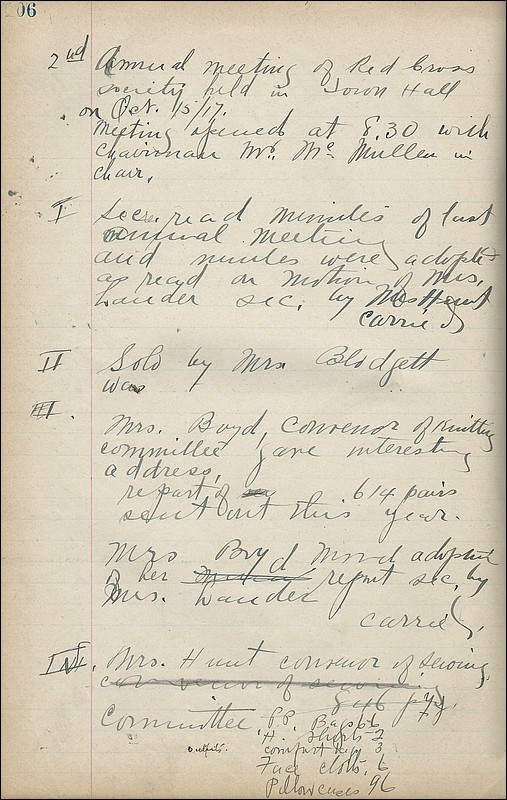 06
2nd Annual meeting of Red Cross
society held in Town Hall
on Oct. 15/17.
Meeting opened at 8.30 with
Chairman Mr. McMullen in
chair.
I Secre. read minutes of last
annual meeting
and minutes were adopted
as read on motion of Mrs.
Lauder sec. by Mrs Hunt
carried
II Solo by Mrs Blodgett
was
III. Mrs. Boyd, convenor of Knitting
committee gave interesting
address,
report of 614 pairs
sent out this year.
Mrs Boyd moved adoption
of her report sec. by
Mrs. Lauder
carried.
IV. Mrs. Hunt convenor of sewing
convenor of sewing
Committee, P.P. Bags 66
H. Shirts 2
comfort bag 3
Face cloths, 6
Pillowcases 96